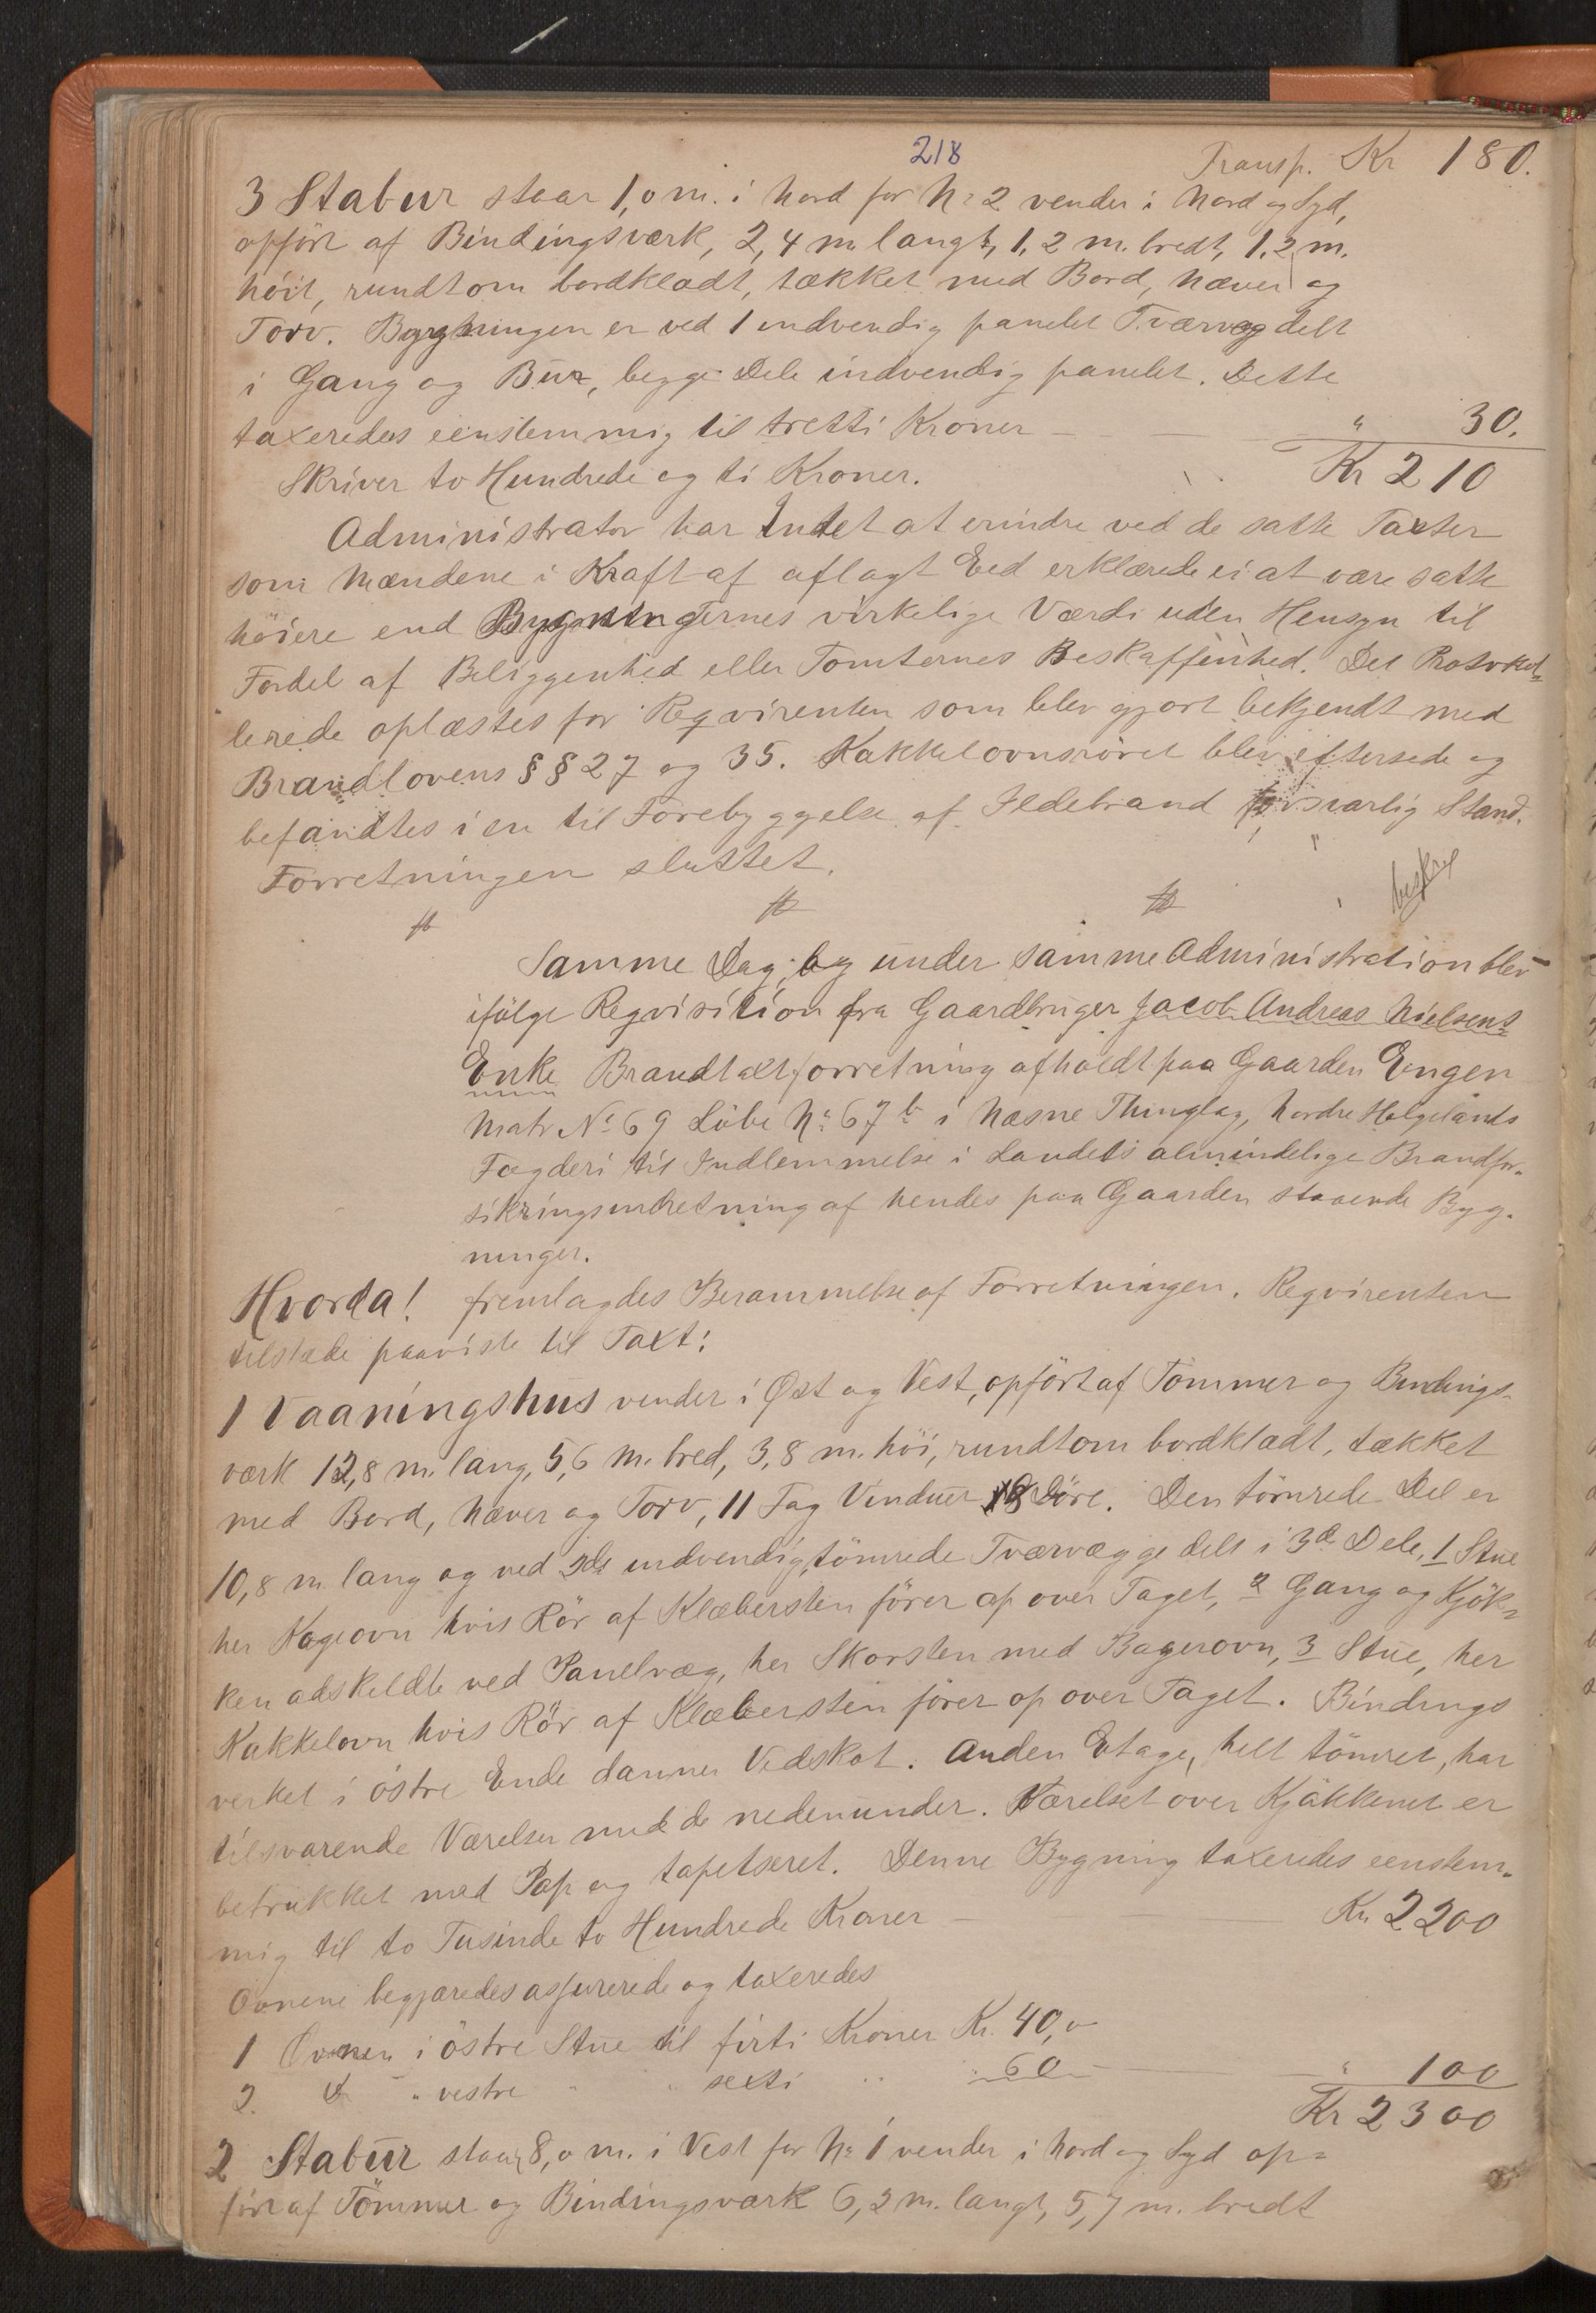 218
Transp. Kr 180.
3 Stabur staar 1,0 m. i Nord for No 2 vender i Nord og Syd,
opfört af Bindingsværk, 2,4 m langt, 1,2 m. bredt, 1,2 m.
höit, rundtom bordklædt, tækket med Bord, Næver og
Torv. Bygningen er ved 1 indvendig panelet Tværvæg delt
i Gang og Bur, begge Dele indvendig panelet. Dette
taxeredes eenstemmig til tretti Kroner — " 30.
Skriver to Hundrede og ti Kroner. Kr 210
Administrator har Intet at erindre ved de satte Taxter
som Mændene i Kraft af aflagt Eed erklærede ei at være satte
höiere end Bygningernes virkelige Værdi uden Hensyn til
Fordel af Beliggenhed eller Tomternes Beskaffenhed. Det Protokol-
lerede oplæstes for Reqvirenten som blev gjort bekjendt med
Brandlovens §§ 27 og 35. Kakkelovnsröret blev eftersede og
befandtes i en til Forebyggelse af Ildebrand forsvarlig Stand.
Forretningen sluttet.
beskrev
Samme Dag og under samme Administration blev
ifölge Reqvisition fra Gaardbruger Jacob Andreas Nielsens
Enke Brandtaxtforretning afholdt paa Gaarden Engen
Matr No 69 Löbe No 67 b i Næsne Thinglag, Nordre Helgelands
Fogderi til Indlemmelse i Landets almindelige Brandfor-
sikringsindretning af hendes paa Gaarden staaende Byg-
ninger.
Hvorda! fremlagdes Berammelse af Forretningen. Reqvirenten
tilstæde paaviste til Taxt:
1 Vaaningshus vender i Øst og Vest, opfört af Tömmer og Bindings-
værk 12,8 m. lang, 5,6 m. bred, 3,8 m. höi, rundtom bordklædt, tækket
med Bord, Næver og Torv, 11 Fag Vinduer 18 Döre. Den tömrede Del er
10,8 m. lang og ved 2de indvendig tömrede Tværvægge delt i 3de Dele, 1 Stue
her Kogeovn hvis Rör af Klæbersten förer op over Taget, 2 Gang og Kjök-
ken adskeldte ved Panelvæg, her Skorsten med Bagerovn, 3 Stue, her
Kakkelovn hvis Rör af Klæbersten förer op over Taget. Bindings
verket i östre Ende danner Vedskot. Anden Etage, helt tömret, har
tilsvarende Værelser med de nedenunder. Værelset over Kjökkenet er
betrukket med Pap og tapetseret. Denne Bygning taxeredes eenstem-
mig til to Tusinde to Hundrede Kroner — Kr. 2200
Ovnene begjæredes assurerede og taxeredes
1 Ovnen i östre Stue til firti Kroner Kr. 40,0
2. d " vestre " " sexti " " 60 — " 100
Kr 2300
2 Stabur staar 8,0 m. i Vest for No 1 vender i Nord og Syd op-
fört af Tömmer og Bindingsværk 6,2 m. langt, 5,7 m. bredt